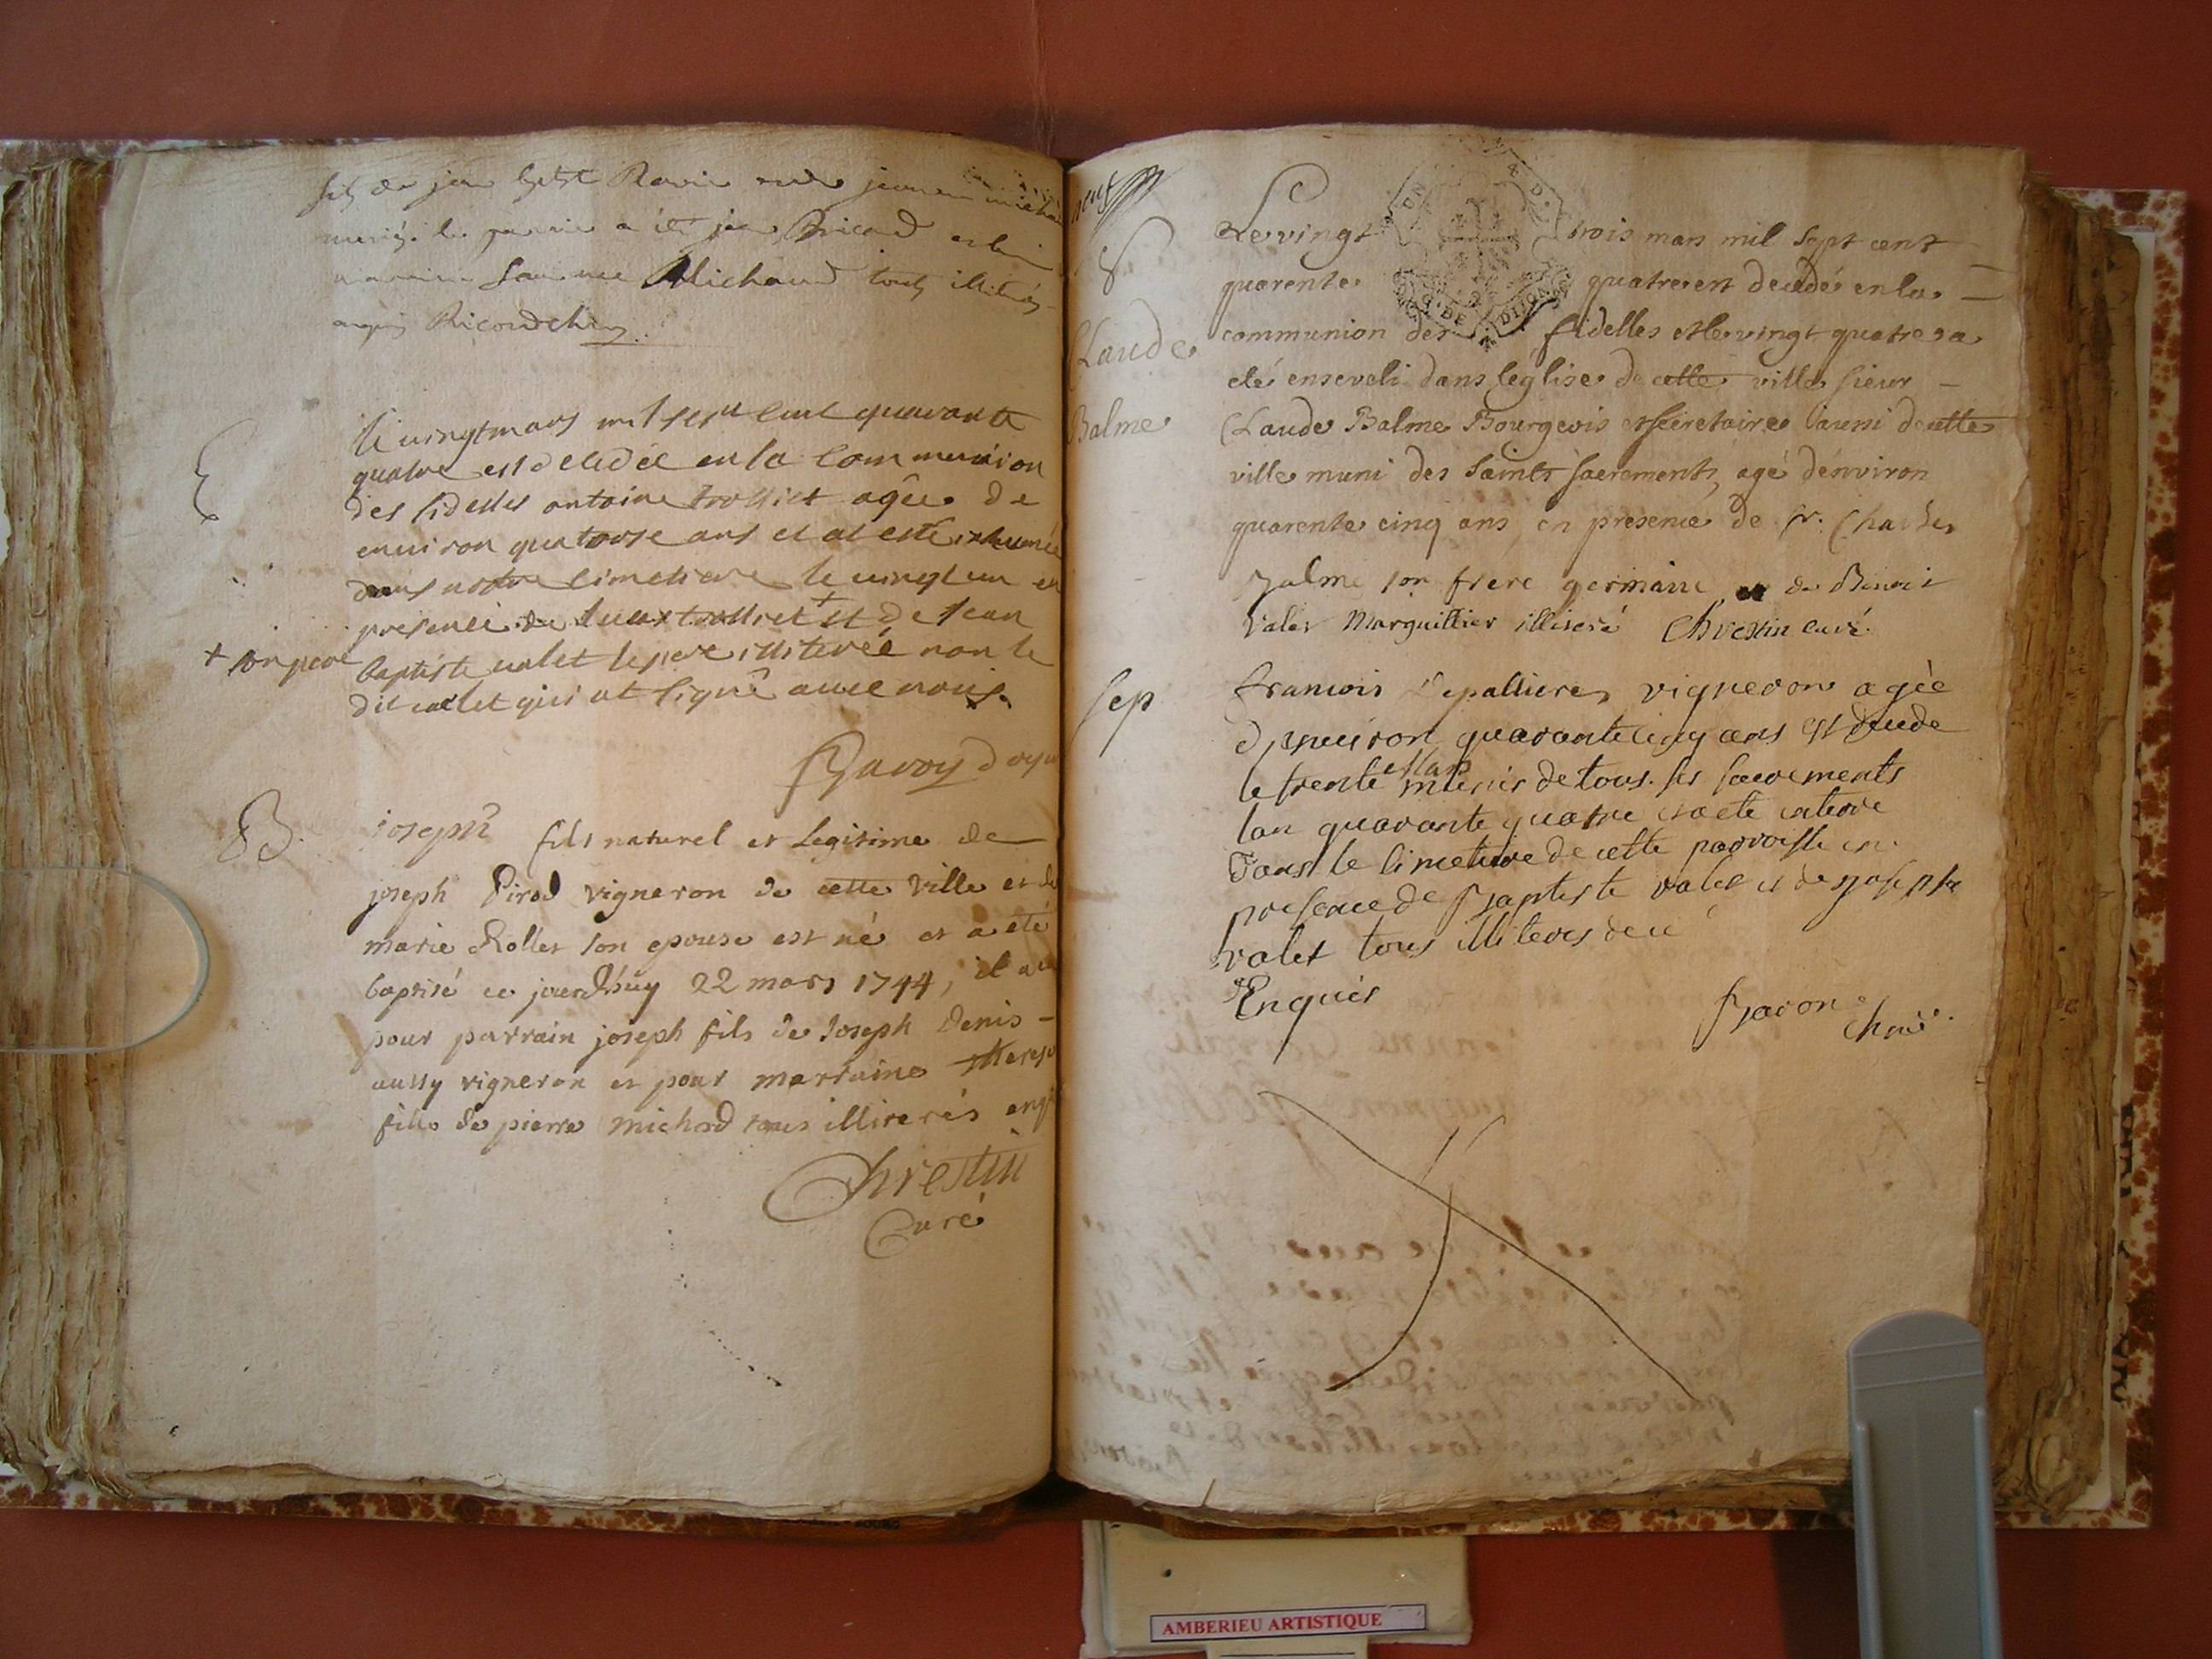 fils de jean
marié. le parrain a été jean Bricand et la
marraine Michaud touts illitérés
enquis Ricondchery
E
le vingt mars mil sept cent quarante
quatre est decedée en la communion
des fidelles antoine trolliet agée de
environ quatorse ans et at esté inhumée
dans notre cimetiere le vingt un en
presence de lucas trolliet + et de Jean
+ son pere
baptiste valet le pere illiterée non le
dit valet qui at signê avec nous
B.
joseph fils naturel et Legitime de
joseph Pirod vigneron de cette ville et de
marie Rollet son epouse est né et a eté
baptisé ce jourdhuy 22 mars 1744, il a eu
pour parrain joseph fils de Joseph Denis
aussy vigneron et pour marraine therese
fille de pierre michord tous illiterés enq
Chrestin
Curé
neuf
S
Claude
Balme
Le vingt trois mars mil sept cent
quarente quatre est decedé en la
communion des fidelles et le vingt quatre a
eté enseveli dans léglise de cette ville sieur
Claude Balme Bourgeois et secretaire aussi de cette
ville muni des saints sacrements, agé dénviron
quarente cinq ans en presence de sr. Charles
Balme son frere germain et de Benoit
Valet Marguillier illiteré Chrestin curé.
Sep
francois Depallieres vigneron agée
denviron quarante cinq ans est decede
le trente mars munis de tous ses sacrements
lan quarante quatre et a ete entere
dans le cimetiere de cette parroisse en
presence de Baptiste valet et de Joseph
valet tous illiteres de ce
Enquis
G. DE DIJON
AMBERIEU ARTISTIQUE